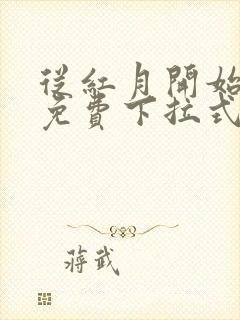 從紅月開始
免費下拉式
蔣武